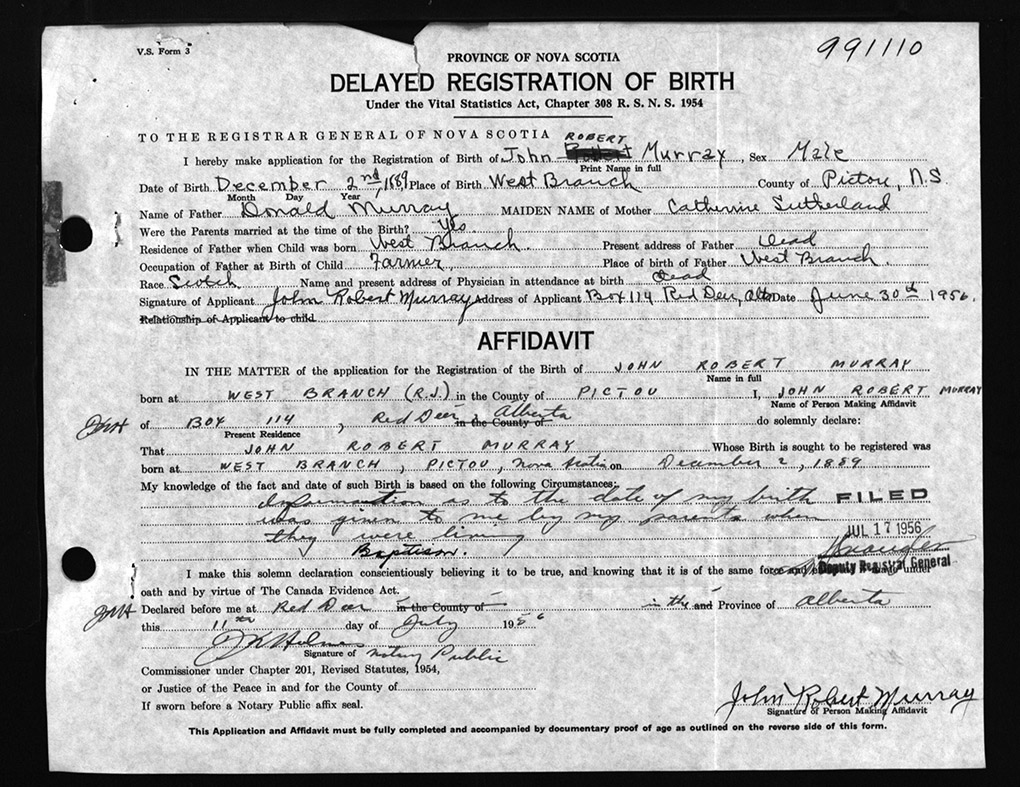 V.S. Form 3
991110
PROVINCE OF NOVA SCOTIA
DELAYED REGISTRATION OF BIRTH
Under the Vital Statistics Act, Chapter 308 R. S. N. S. 1954
TO THE REGISTRAR GENERAL OF NOVA SCOTIA ROBERT
I hereby make application for the Registration of Birth of John Murray, Sex Male
Print Name in full
Date of Birth December 2nd, 1889 Place of Birth West Branch County of Pictou, N.S.
Month Day Year
Name of Father Donald Murray MAIDEN NAME of Mother Catherine Sutherland
Were the Parents married at the time of the Birth? Yes
Residence of Father when Child was born West Branch. Present address of Father Dead
Occupation of Father at Birth of Child Farmer, Place of birth of Father West Branch.
Race Scotch Name and present address of Physician in attendance at birth dead
Signature of Applicant John Robert Murray Address of Applicant Box 114 Red Deer, Alta Date June 30th 1956.
Relationship of Applicant to child
AFFIDAVIT
IN THE MATTER of the application for the Registration of the Birth of JOHN ROBERT MURRAY
Name in full
born at WEST BRANCH (R.J.) in the County of PICTOU I, JOHN ROBERT MURRAY
Name of Person Making Affidavit
of BOX 114, Red Deer, in the County of Alberta do solemnly declare:
Present Residence
That JOHN ROBERT MURRAY Whose Birth is sought to be registered was
born at WEST BRANCH, PICTOU, Nova Scotia on December 2, 1889
My knowledge of the fact and date of such Birth is based on the following Circumstances:
Information as to the date of my birth FILED
was given to me by my parents when JUL 17 1956
they were living
Baptism. Deputy Registrar General
I make this solemn declaration conscientiously believing it to be true, and knowing that it is of the same force and under
oath and by virtue of The Canada Evidence Act.
Declared before me at Red Deer in the County of in the and Province of Alberta
this 11th day of July 1956
Signature of Notary Public
Commissioner under Chapter 201, Revised Statutes, 1954,
or Justice of the Peace in and for the County of
If sworn before a Notary Public affix seal.
John Robert Murray
Signature of Person Making Affidavit
This Application and Affidavit must be fully completed and accompanied by documentary proof of age as outlined on the reverse side of this form.